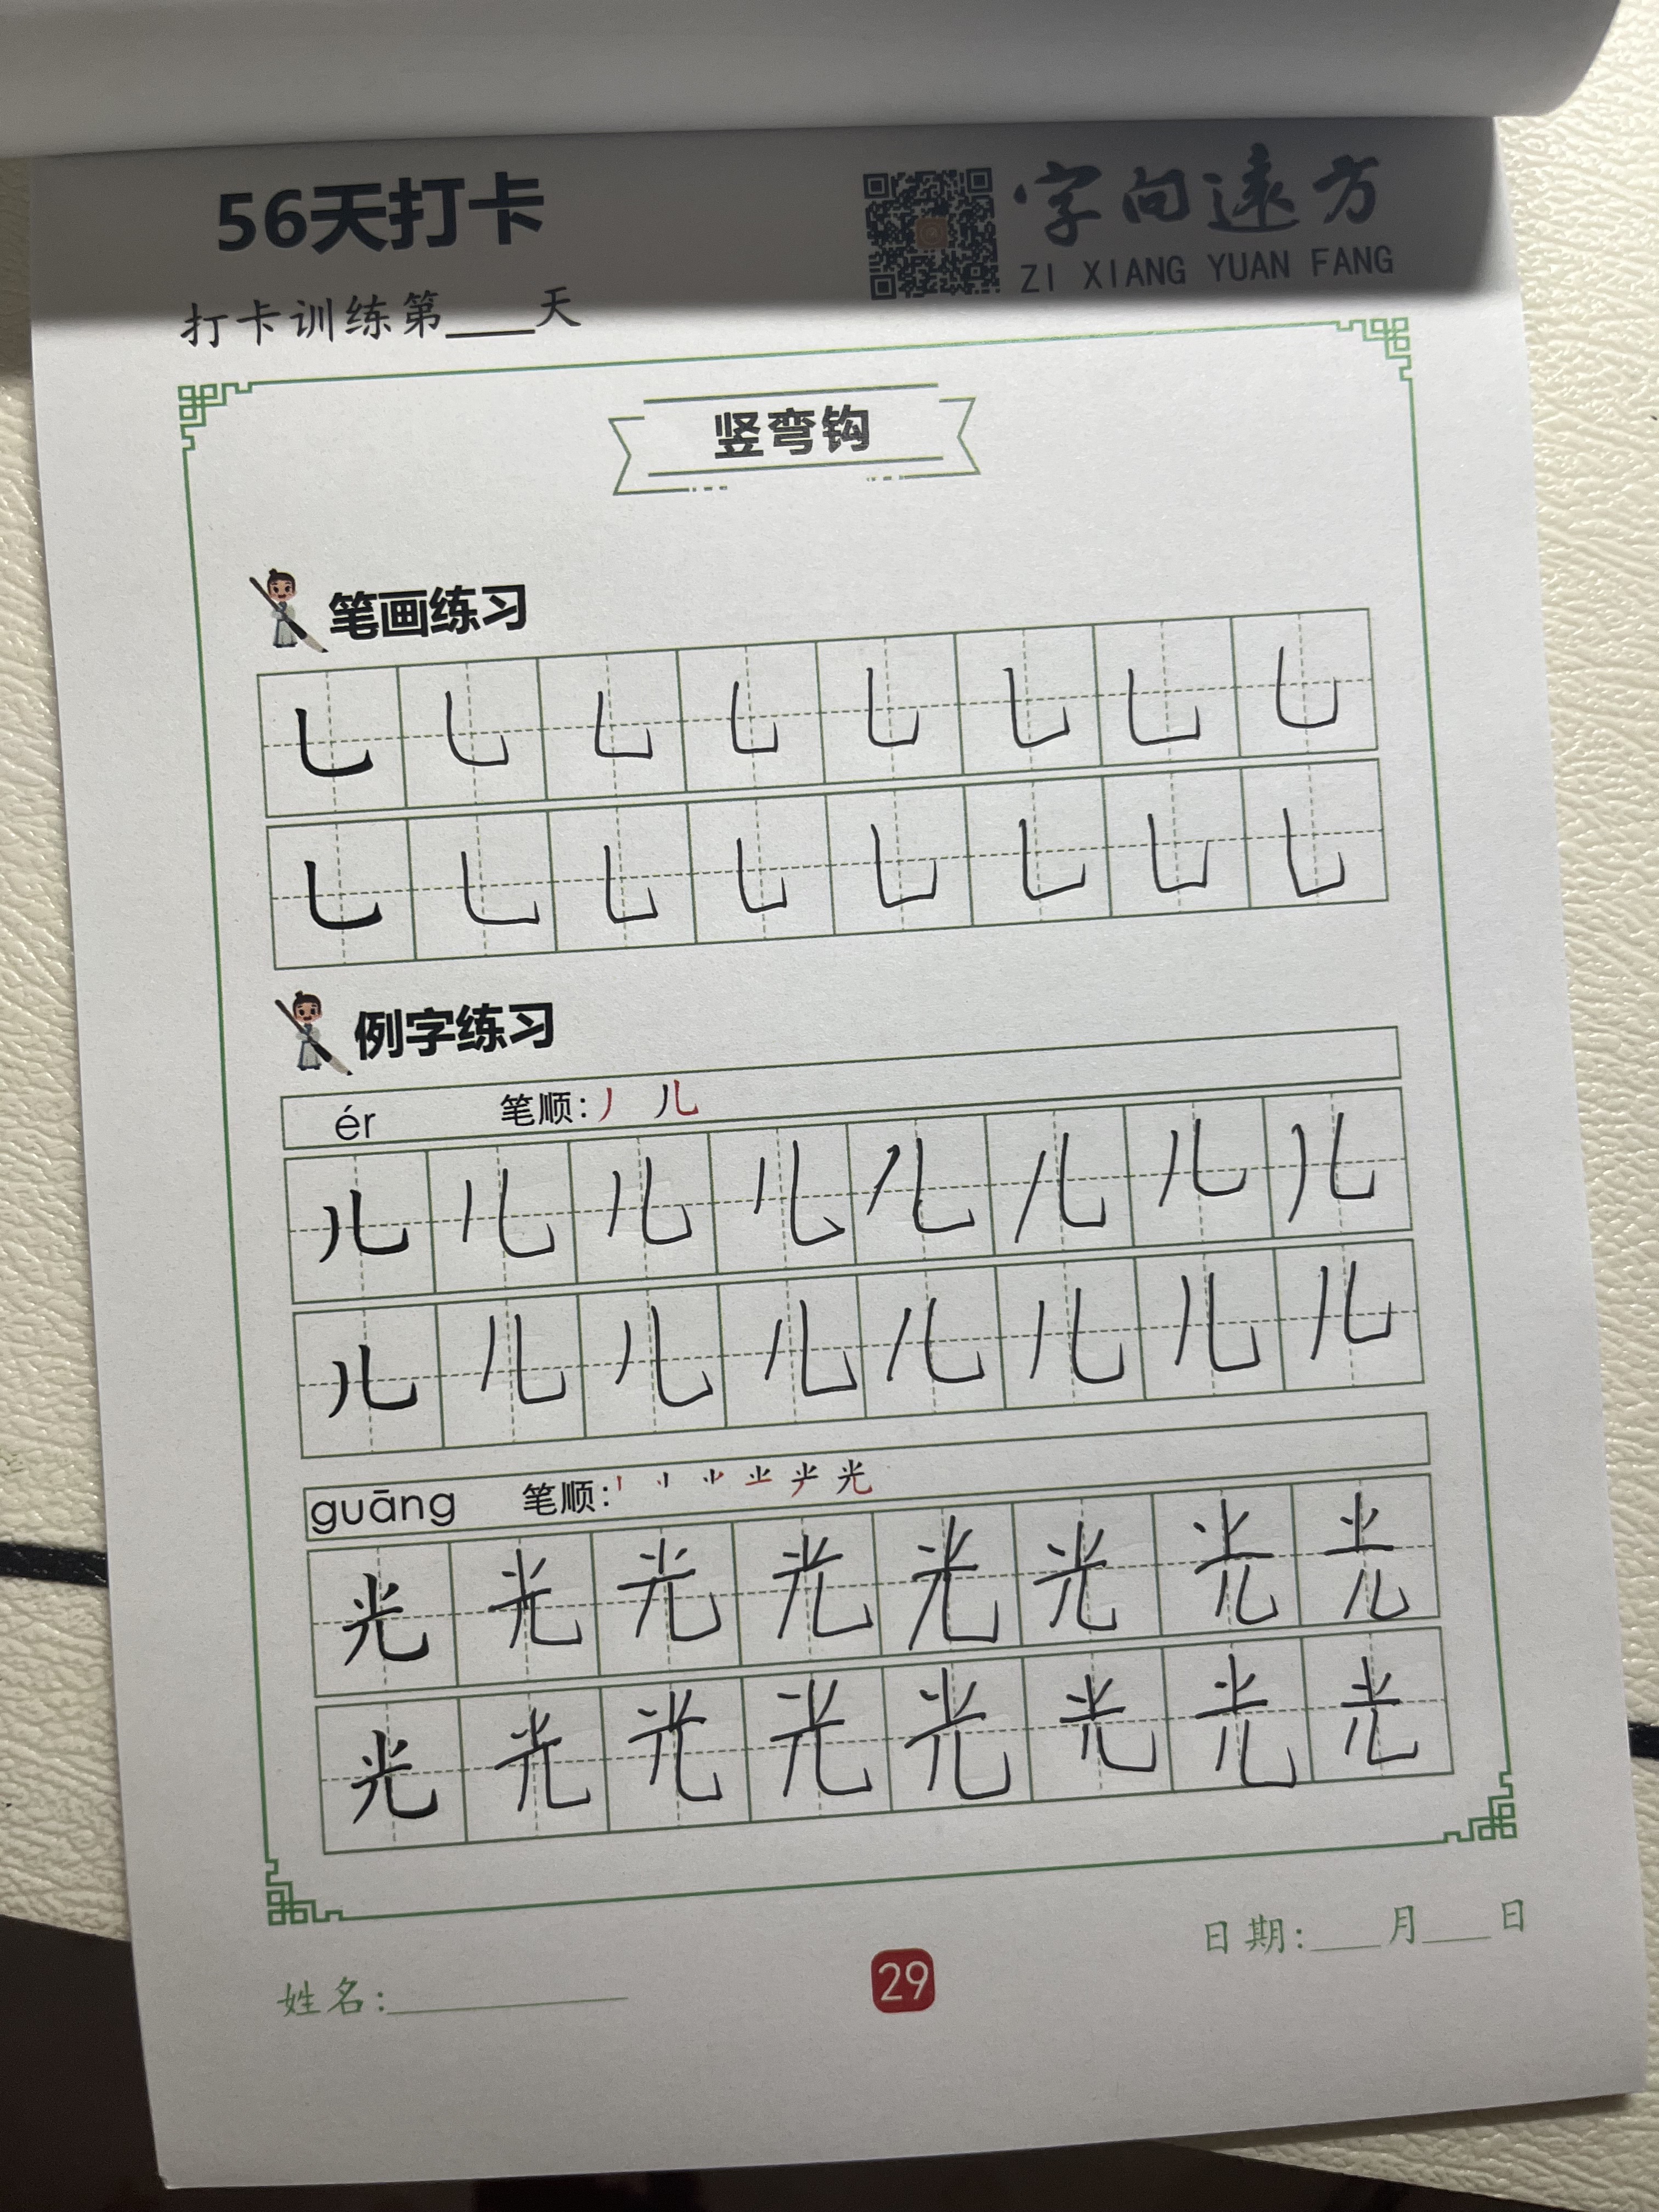 56天打卡
字向遠方
ZI XIANG YUAN FANG
打卡训练第____天
竖弯钩
笔画练习
乚 乚 乚 乚 乚 乚 乚 乚
乚 乚 乚 乚 乚 乚 乚 乚
例字练习
ér 笔顺:丿 儿
儿 儿 儿 儿 儿 儿 儿 儿
儿 儿 儿 儿 儿 儿 儿 儿
guāng 笔顺: 光
光 光 光 光 光 光 光 光
光 光 光 光 光 光 光 光
日期:___月___日
姓名:__________
29